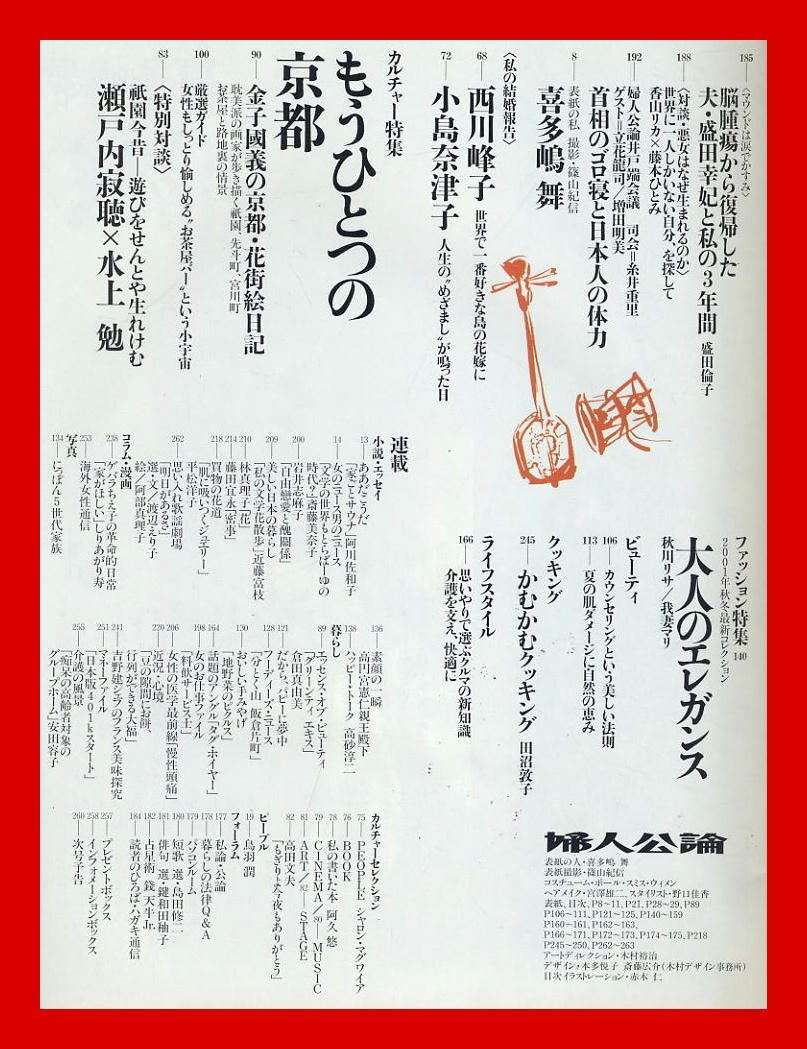 185
〈マウンドは涙でかすみ〉
脳腫瘍から復帰した
夫・盛田幸妃と私の3年間 盛田倫子
188
〈対談・悪女はなぜ生まれるのか〉
世界に一人しかいない自分、を探して
香山リカ×藤本ひとみ
192
婦人公論井戸端会議 司会=糸井重里
ゲスト=立花龍司/増田明美
首相のゴロ寝と日本人の体力
8
表紙の私 撮影・篠山紀信
喜多嶋 舞
〈私の結婚報告〉
68
西川峰子 世界で一番好きな島の花嫁に
72
小島奈津子 人生の“めざまし”が鳴った日
カルチャー特集
もうひとつの
京都
90
金子國義の京都・花街絵日記
耽美派の画家が歩き描く祇園、先斗町、宮川町
お茶屋と路地裏の情景
100
厳選ガイド
女性もしっとり愉しめる“お茶屋バー”という小宇宙
83
〈特別対談〉
祇園今昔―遊びをせんとや生れけむ
瀬戸内寂聴×水上 勉
ファッション特集 140
2001年秋冬最新コレクション
大人のエレガンス
秋川リサ/我妻マリ
ビューティ
106 カウンセリングという美しい法則
113 夏の肌ダメージに自然の恵み
クッキング
245 かむかむクッキング 田沼敦子
ライフスタイル
166 思いやりで選ぶクルマの新知識
介護を支え、快適に
連載
小説・エッセイ
13 ああだこうだ
「家ごとサウナ」阿川佐和子
14 女のニュース男のニュース
「文学の世界もとらばーゆの
時代?」斎藤美奈子
200 岩井志麻子
「自由戀愛と醜關係」
209 美しい日本の暮らし
「私の文学花散歩」近藤富枝
210 林真理子「花」
214 藤田宜永「密事」
218 買物の花道
「肌に吸いつくジュエリー」
平松洋子
262 思い入れ歌謡劇場
「明日があるさ」
選・文/渡辺えり子
絵/阿部真理子
コラム・漫画
238 ゲバラちえ子の革命的日常
「家がほしい」しりあがり寿
253 海外女性通信
写真
134 にっぽん5世代家族
136 素顔の一瞬
高円宮憲仁親王殿下
138 ハッピー・トーク 高砂淳二
暮らし
89 エッセンス・オブ・ビューティ
「グリーンティ エキス」
倉田真由美
121 だから、パピーに夢中
128 フーディーズ・ニュース
「分とく山 飯倉片町」
130 おいしい手みやげ
「地野菜のピクルス」
164 話題のアングル「タグ・ホイヤー」
198 女のお仕事ファイル
「料飲サービス士」
206 女性の医学最前線「慢性頭痛」
220 近況・心境
「豆の隙間にお餅、
行列ができる大福」
241 吉野建シェフのフランス美味探究
251 マネーファイル
「日本版401kスタート」
255 介護の風景
「痴呆の高齢者対象の
グループホーム」安田容子
カルチャーセレクション
75 PEOPLE シャロン・マグワイア
76 BOOK
78 私の書いた本 阿久 悠
79 CINEMA/80―MUSIC
81 ART/82―STAGE
82 高田文夫
「もぎりよ今夜もありがとう」
ピープル
19 鳥羽 潤
フォーラム
177 私論・公論
178 暮らしの法律Q&A
179 パソコンルーム
180 短歌 選・島田修二
181 俳句 選・鍵和田秞子
182 占星術 錢 天牛Jr.
184 読者のひろば・ハガキ通信
257 プレゼントボックス
258 インフォメーションボックス
260 次号予告
婦人公論
表紙の人・喜多嶋 舞
表紙撮影・篠山紀信
コスチューム・ポール・スミス・ウィメン
ヘアメイク・宮澤雄二、スタイリスト・野口佳香
表紙、目次、P8~11、P21、P28~29、P89
P106~111、P121~125、P140~159
P160~161、P162~163、
P166~171、P172~173、P174~175、P218
P245~250、P262~263
アートディレクション・木村裕治
デザイン・本多悦子 斎藤広介(木村デザイン事務所)
目次イラストレーション・赤木 仁